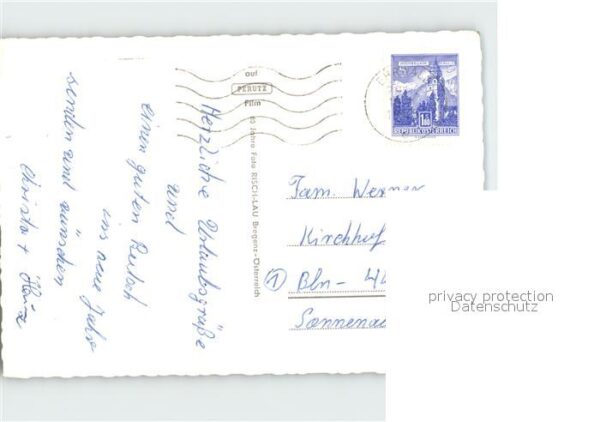 Herzliche Urlaubsgrüße
und
einen guten Rutsch
ins neue Jahr
senden und wünschen
Christa + Heinz
auf
PERUTZ
Film
60 Jahre Foto RISCH-LAU Bregenz-Österreich
REPUBLIK ÖSTERREICH
1.50
Fam. Werner
Kirchhof
1
Bln - 44
Sonnena
privacy protection
Datenschutz